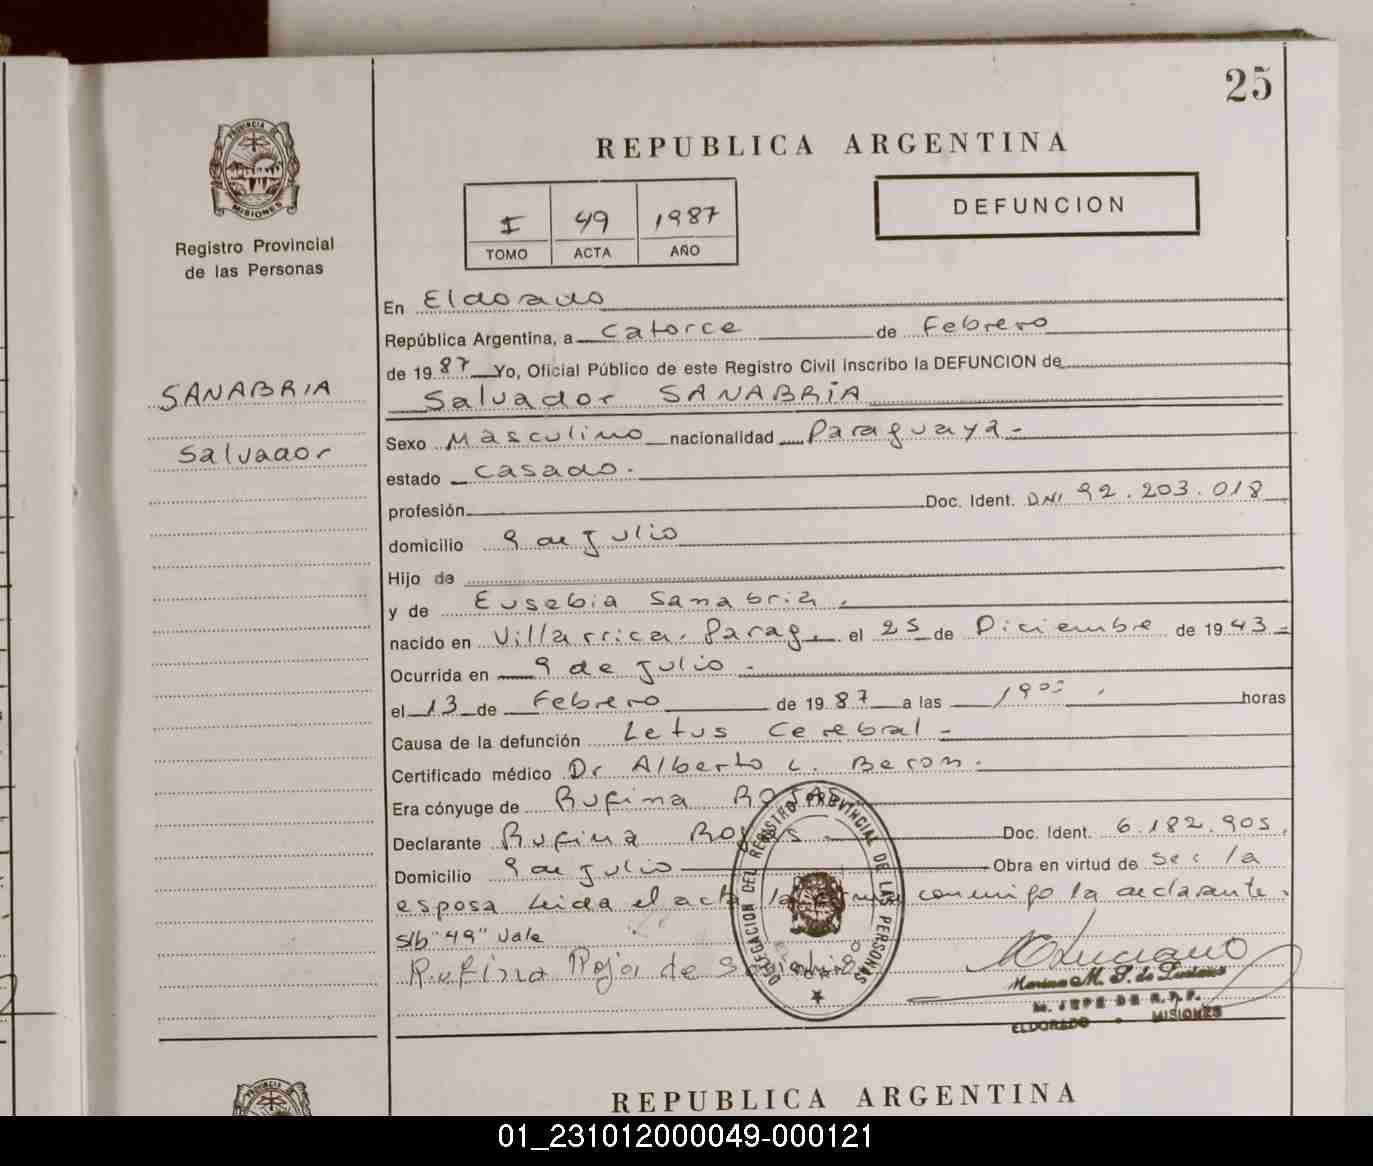 25
PROVINCIA DE
MISIONES
Registro Provincial
de las Personas
SANABRIA
Salvador
REPUBLICA ARGENTINA
I 49 1987
TOMO ACTA AÑO
DEFUNCION
En Eldorado
República Argentina, a Catorce de Febrero
de 1987 Yo, Oficial Público de este Registro Civil inscribo la DEFUNCION de
Salvador SANABRIA
Sexo Masculino nacionalidad Paraguaya -
estado Casado.
profesión Doc. Ident. DNI 92.203.018
domicilio 9 de julio
Hijo de
y de Eusebia Sanabria.
nacido en Villarrica. Parag. el 25 de Diciembre de 1943 -
Ocurrida en 9 de julio -
el 13 de Febrero de 1987 a las 19 horas
Causa de la defunción Letus Cerebral -
Certificado médico Dr Alberto L. Beron.
Era cónyuge de Rufina ROJAS
Declarante Rufina Rojas - Doc. Ident. 6.182.905.
Domicilio 9 de julio Obra en virtud de Ser la
esposa leida el acta la firma conmigo la declarante.
s/b "49" Vale
Rufina Roja de Sanabria
DELEGACION DEL REGISTRO PROVINCIAL DE LAS PERSONAS
ELDORADO
Marina M. S. de Luciano
M. JEFE DE R.P.P.
ELDORADO - MISIONES
REPUBLICA ARGENTINA
01_231012000049-000121